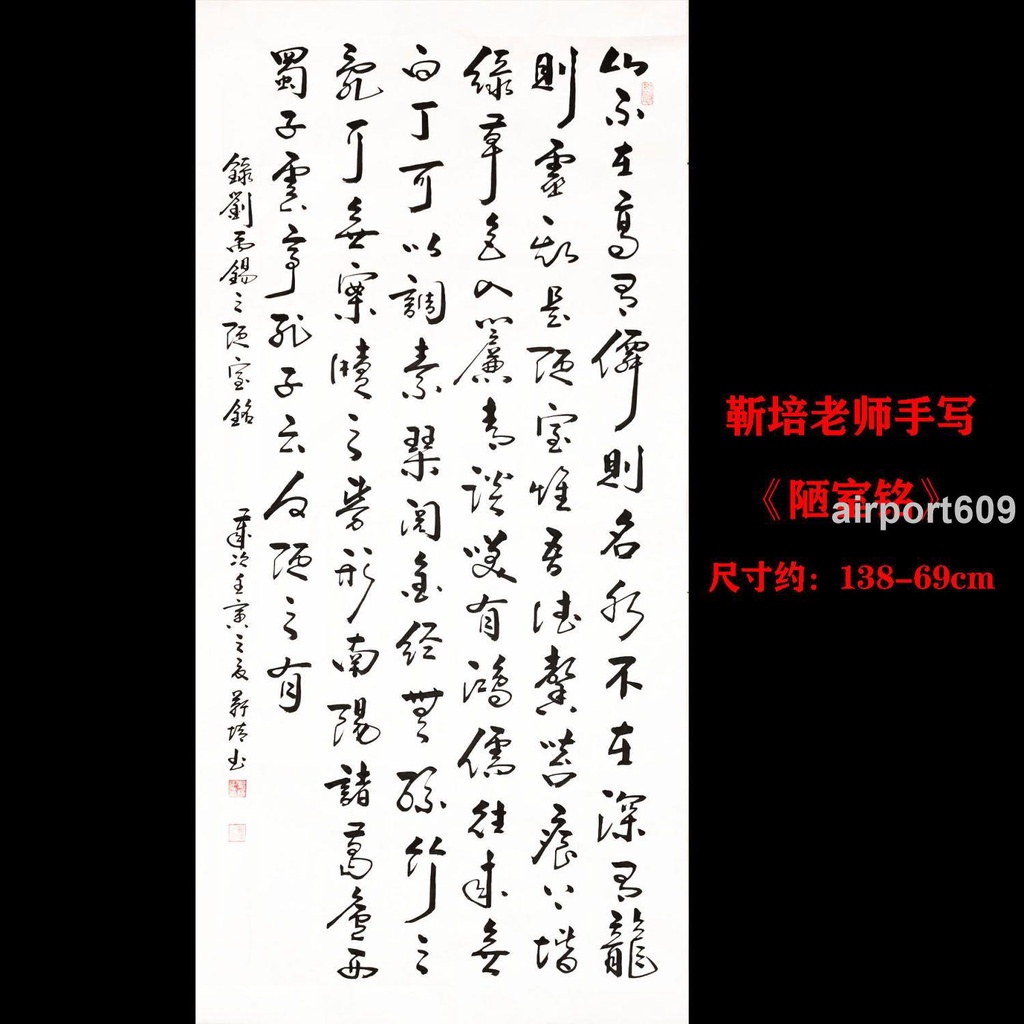 山不在高有僊則名水不在深有龍
則靈斯是陋室惟吾德馨苔痕上堦
綠草色入簾青談笑有鴻儒往來無
白丁可以調素琴閱金經無絲竹之
亂耳無案牘之勞形南陽諸葛廬西
蜀子雲亭孔子云何陋之有
錄劉禹錫之陋室銘 歲次壬寅之夏靳培书
靳培老师手写
《陋室铭》
airport609
尺寸约：138-69cm